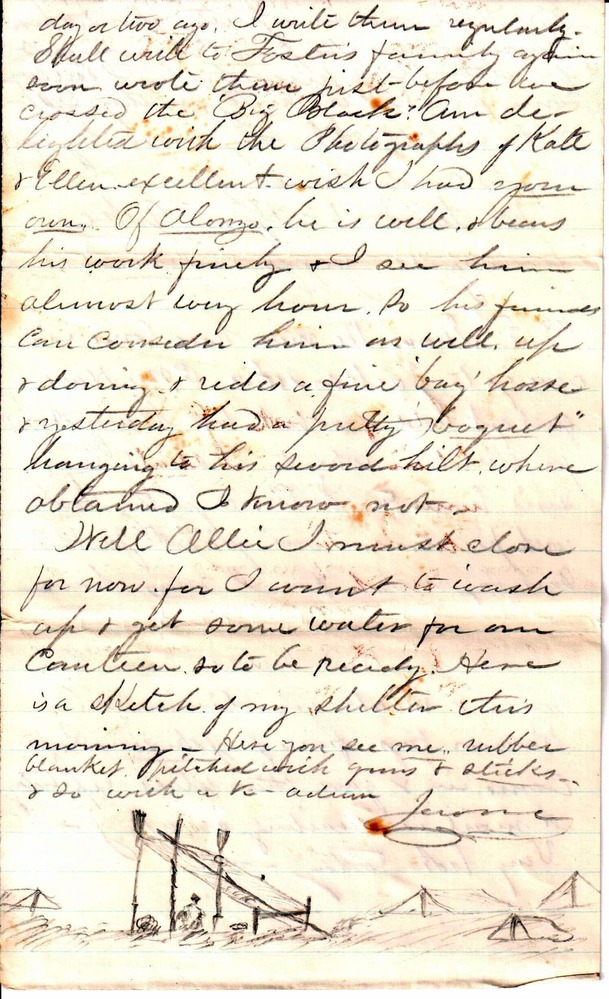 day or two ago. I write them regularly.
Shall write to Foster's family again
soon wrote them just before we
crossed the "Big Black". Am de-
lighted with the Photographs of Kate
& Ellen. excellent. wish I had your
own. Of Alonzo, he is well, & bears
his work finely & I see him
almost every hour. So his friends
can consider him as well. up
& doing & rides a fine 'bay' horse
& yesterday had a pretty "boquet"
hanging to his sword hilt, where
obtained I know not.
Well Allie I must close
for now. for I want to wash
up & get some water for our
Canteen. so to be ready. Here
is a sketch of my shelter this
morning - Here you see me,, rubber
blanket pitched with guns & sticks -
& so with a K- adieu
Jerome